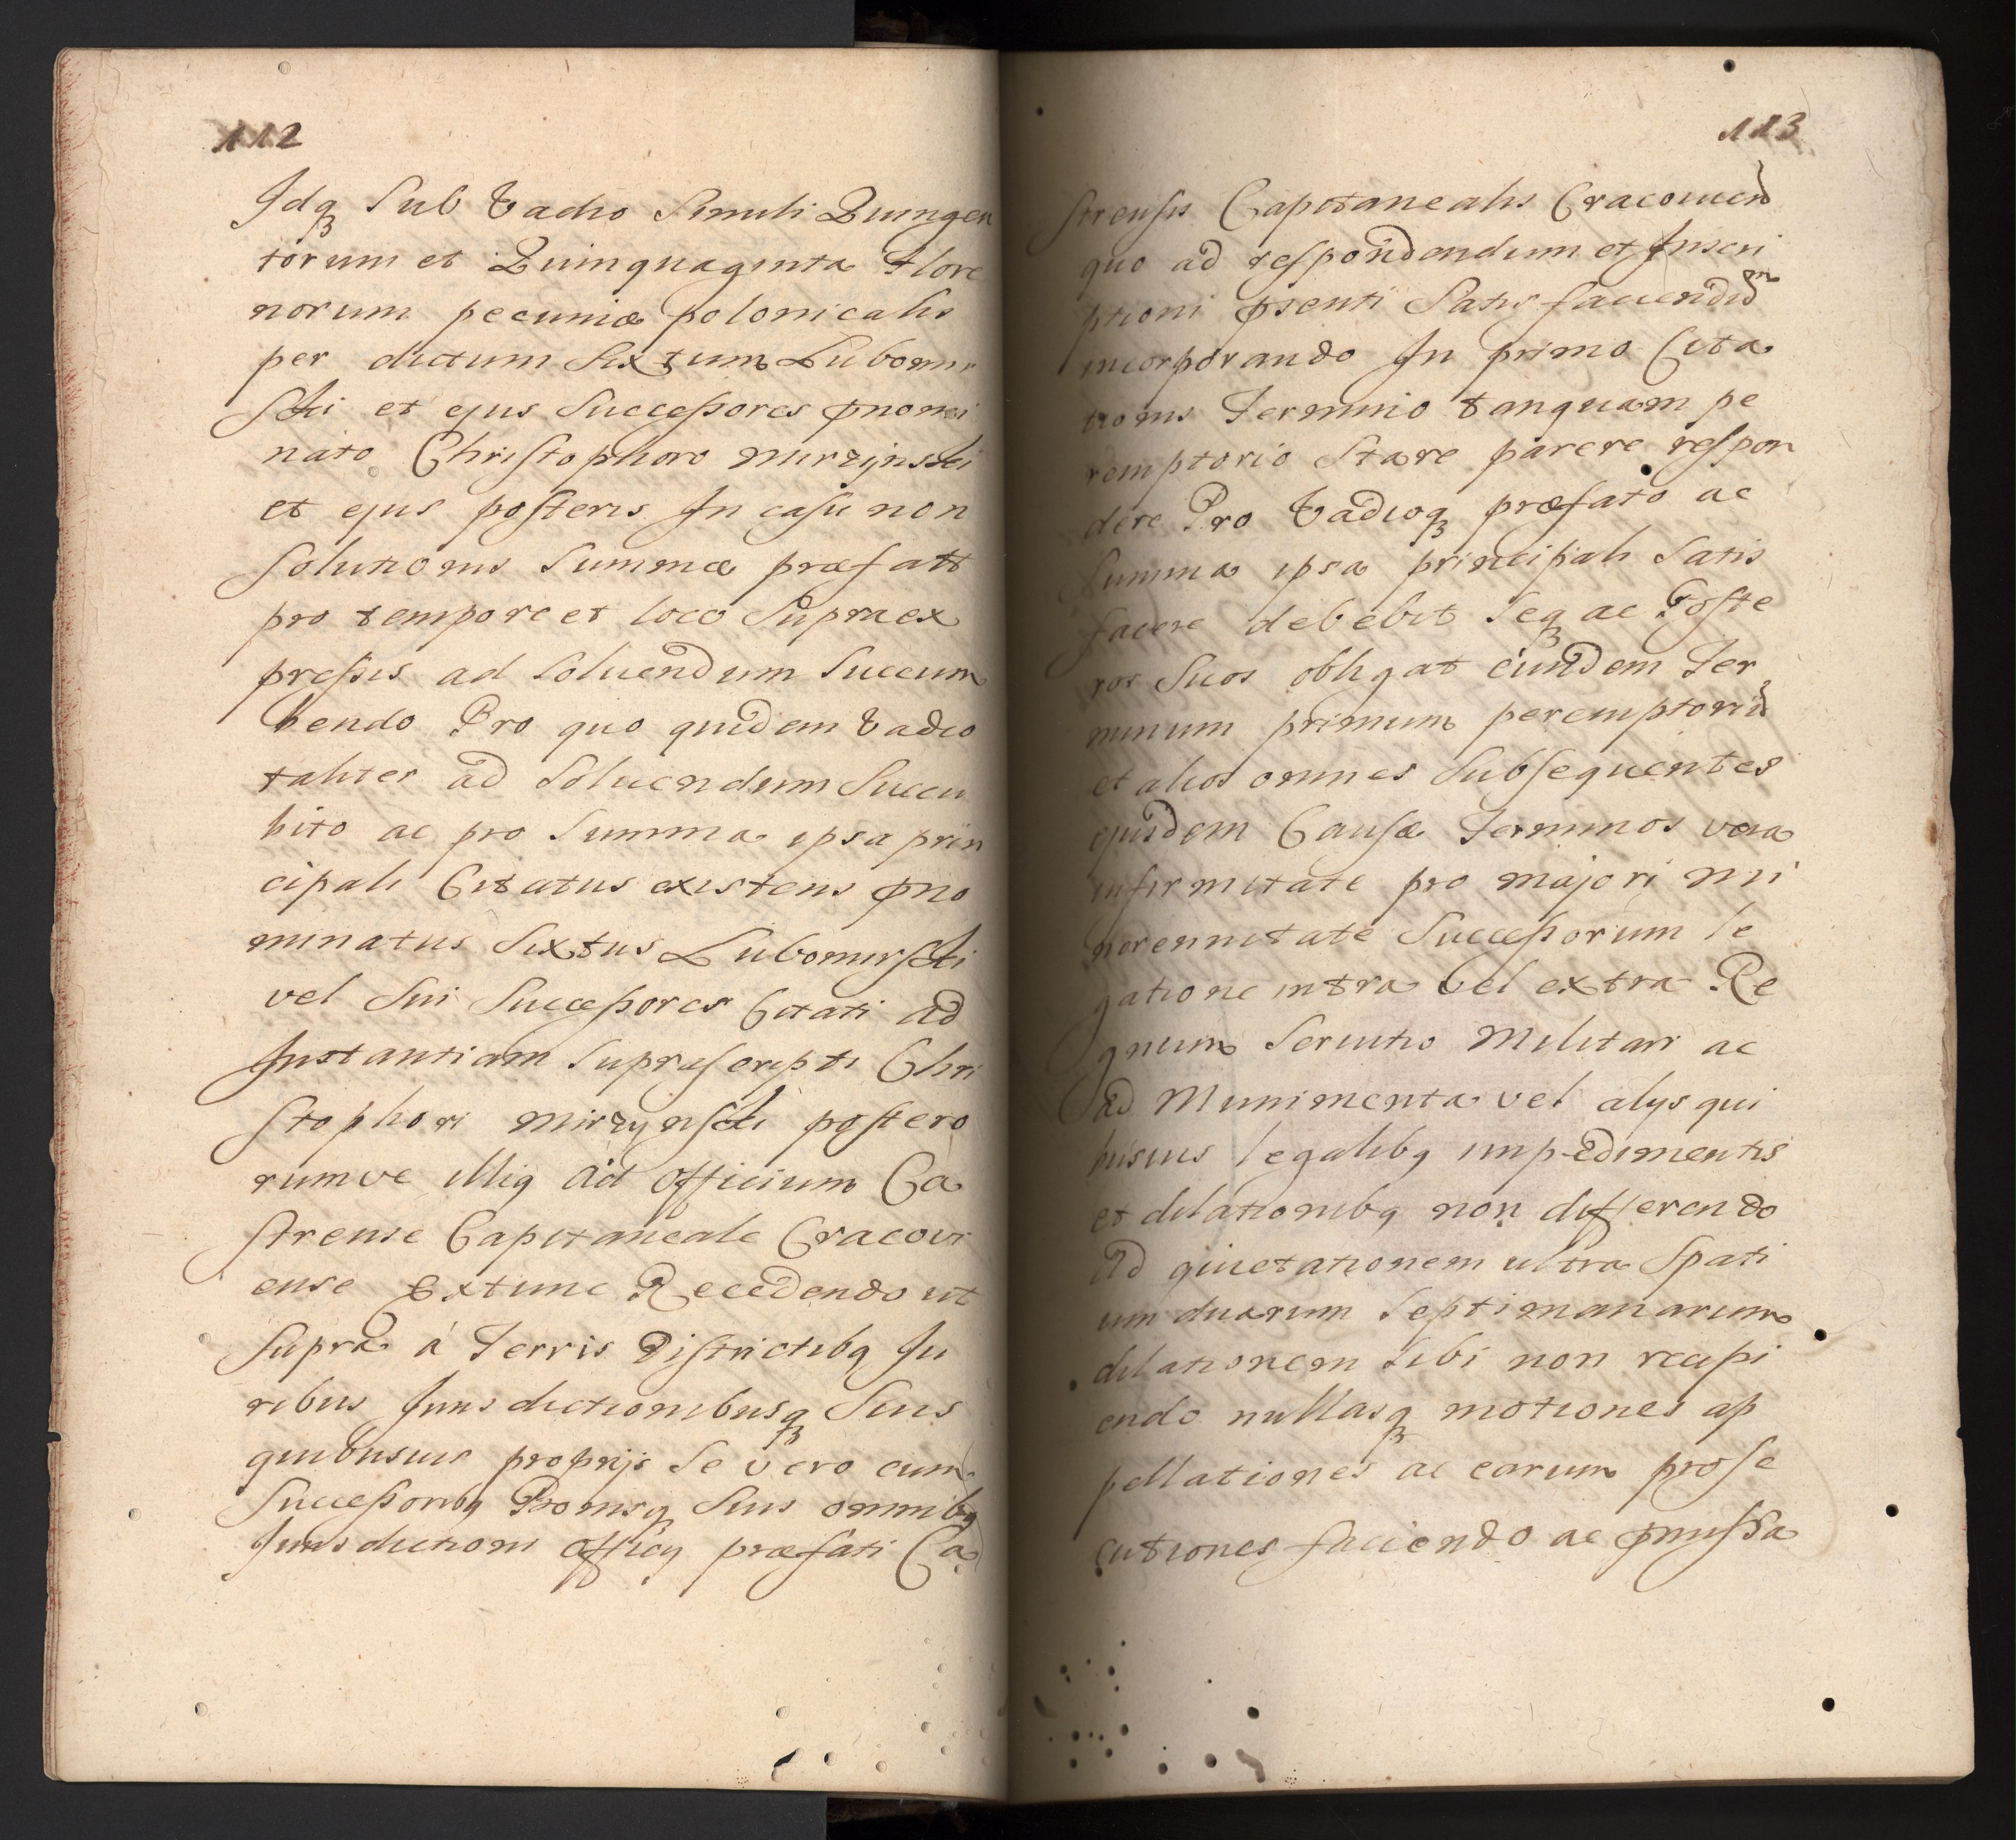 112
Idq₃ Sub Vadio Simili Quingen
torum et Quinquaginta Flore
norum pecuniæ polonicalis
per dictum Sixtum Lubomir
ski et ejus Successores pnomi
nato Christophoro Mirzijnski
et ejus posteris In casu non
Solutionis Summæ præfatæ
pro tempore et loco Supra ex
pressis ad Solvendum Succum
bendo Pro quo quidem Vadio
taliter ad Solvendum Succu
bito ac pro Summa ipsa prin
cipali Citatus existens pno
minatus Sixtus Lubomirski
vel Sui Successores Citati ad
Instantiam Suprascripti Chri
stophori Mirzynski postero
rumve illiq ad officium Ca
strense Capitaneale Cracovi
ense Extunc Recedendo ut
Supra á Terris Districtibq Ju
ribus Jurisdictionibusq₃ Suis
quibusvis proprijs Se vero cum
Successoribq Bonisq Suis omnibq
Jurisdictioni officij præfati Ca
113
strensis Capitanealis Cracovien
quo ad respondendum et Inscri
ptioni psenti Satis faciendum
incorporando In primo Cita
tionis Termino tanquam pe
remptorio Stare parere respon
dere Pro Vadioq₃ præfato ac
Summa ipsa principali Satis
facere debebit Seq₃ ac Poste
ros Suos obligat eundem Ter
minum primum peremptoriu
et alios omnes Subsequentes
ejusdem Causæ Terminos vera
infirmitate pro majori mi
norennitate Successorum le
gatione intra vel extra Re
gnum Servitio Militari ac
ad Munimenta vel alijs qui
busvis legalibq impedimentis
et dilationibq non differendo
Ad quietationem ultra Spati
um duarum Septimanarum
dilationem Sibi non recipi
endo nullasq₃ motiones ap
pellationes ac earum prose
cutiones faciendo ac pmissa